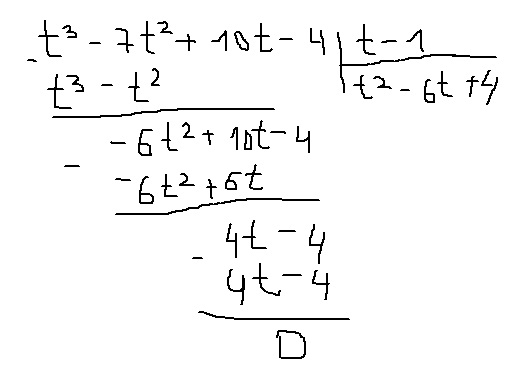 t³ - 7t² + 10t - 4 | t - 1
- t³ - t² | t² - 6t + 4
- 6t² + 10t - 4
- -6t² + 6t
4t - 4
- 4t - 4
0